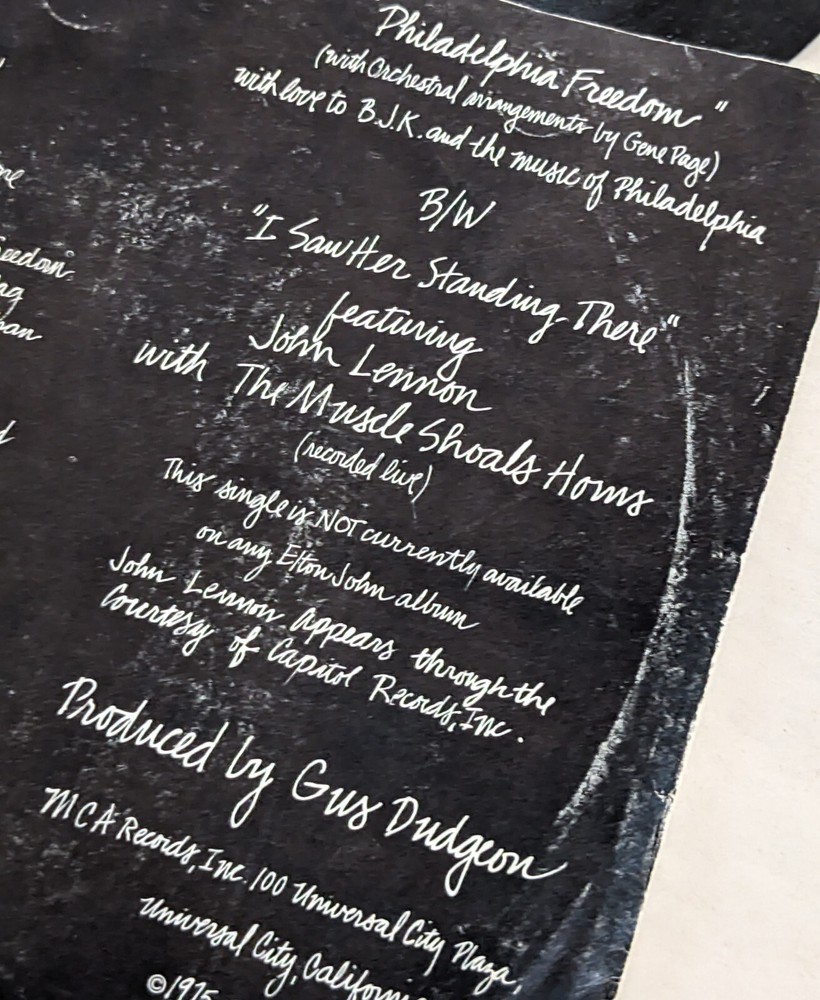 Philadelphia Freedom"
(with Orchestral arrangements by Gene Page)
with love to B.J.K. and the music of Philadelphia
B/W
"I Saw Her Standing There"
featuring
John Lennon
with The Muscle Shoals Horns
(recorded live)
This single is NOT currently available
on any Elton John album
John Lennon Appears through the
Courtesy of Capitol Records, Inc.
Produced by Gus Dudgeon
MCA Records, Inc. 100 Universal City Plaza,
Universal City, California
©1975